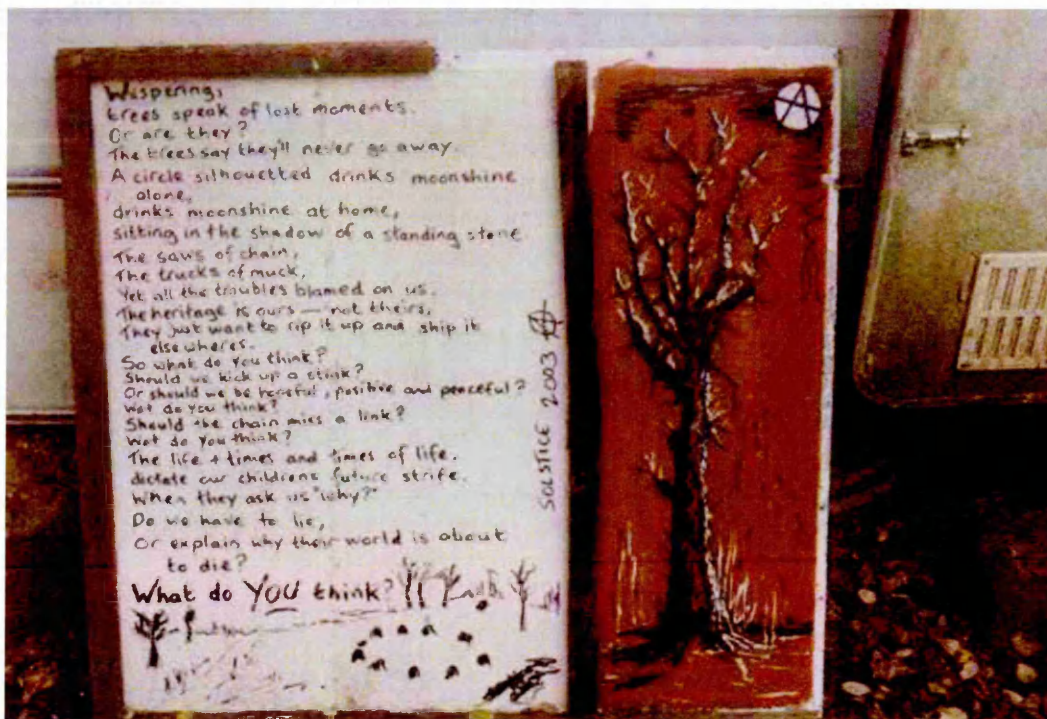 Wispering,
trees speak of lost moments.
Or are they?
The trees say they'll never go away.
A circle silhouetted drinks moonshine
alone,
drinks moonshine at home,
sitting in the shadow of a standing stone
The saws of chain,
The trucks of muck,
Yet all the troubles blamed on us.
The heritage is ours — not theirs,
They just want to rip it up and ship it
elsewheres.
So what do you think?
Should we kick up a stink?
Or should we be peaceful, positive and peaceful?
Wot do you think?
Should the chain miss a link?
Wot do you think?
The life + times and times of life.
dictate our childrens future strife.
When they ask us "why?"
Do we have to lie,
Or explain why their world is about
to die?
What do YOU think?
SOLSTICE 2003 Ⓐ
Ⓐ